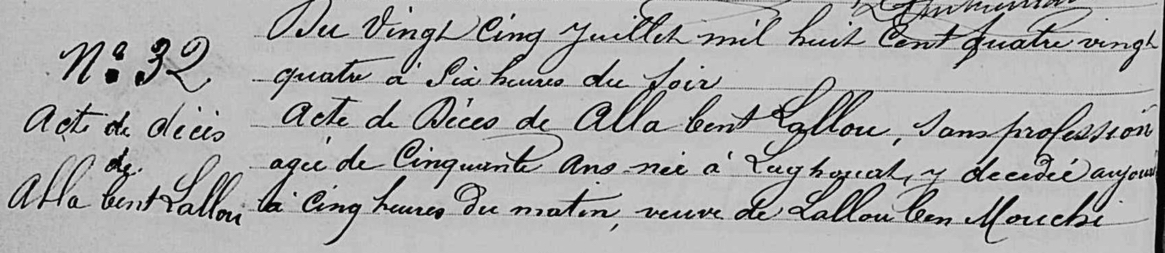 Du Vingt Cinq Juillet mil huit Cent quatre vingt
N° 32
quatre à Six heures du soir
Acte de décès
Acte de Décès de Alla bent Lallou, Sans profession
de
agée de Cinquante ans née à Laghouat, y decedée
Alla bent Lallou
à Cinq heures du matin, veuve de Lallou ben Mouchi